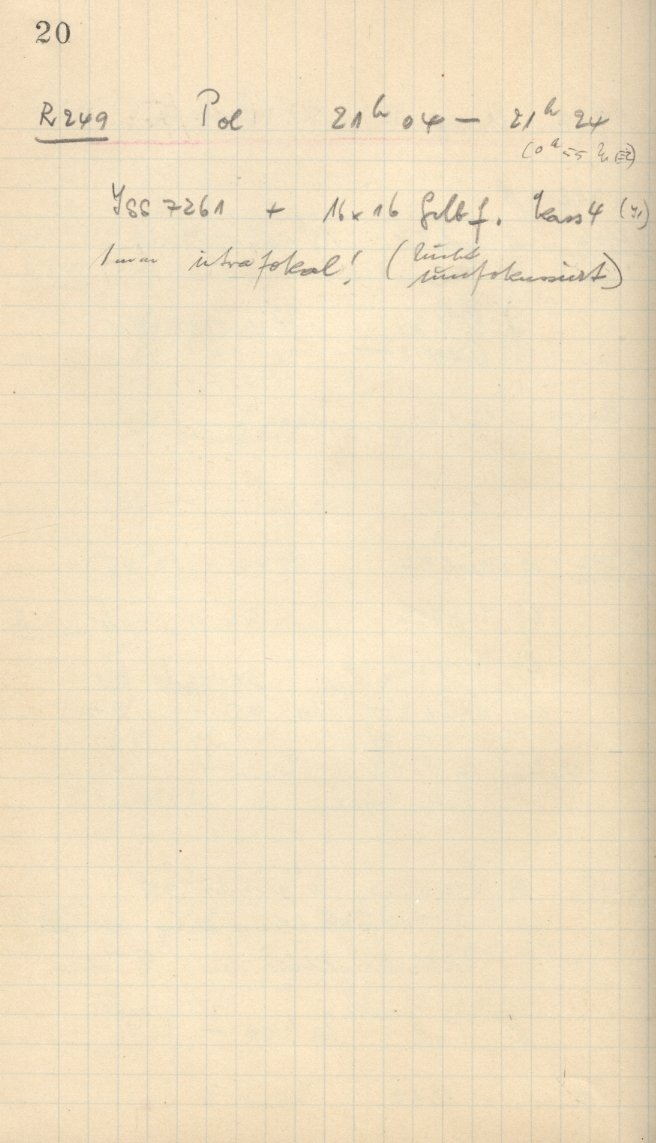 20
R 249 Pol 21h 04 — 21h 24
7261 + 16x16 Gelbf. Kass 4
1 mm intrafokal! (nicht
umfokussiert)